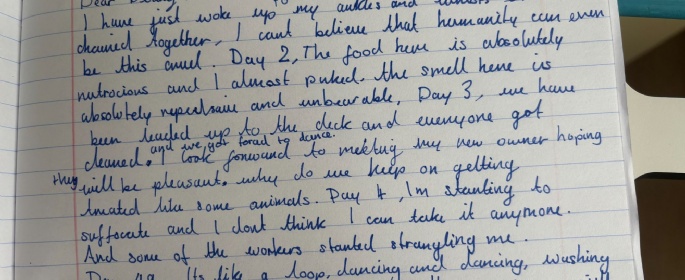 Dear
I have just woke up to my ankles and
chained together, I cant believe that humanity can even
be this cruel. Day 2, The food here is absolutely
nutrocious and I almost puked. the smell here is
absolutely repealsave and unbearable, Day 3, we have
been leaded up to the deck and everyone got
and we got forced to dance.
cleaned. I look forward to meeting my new owner hoping
they will be pleasant. why do we keep on getting
treated like some animals. Day 4, Im starting to
suffocate and I dont think I can take it anymore.
And some of the workers started strangling me.
Its like a loop, dancing and dancing, washing